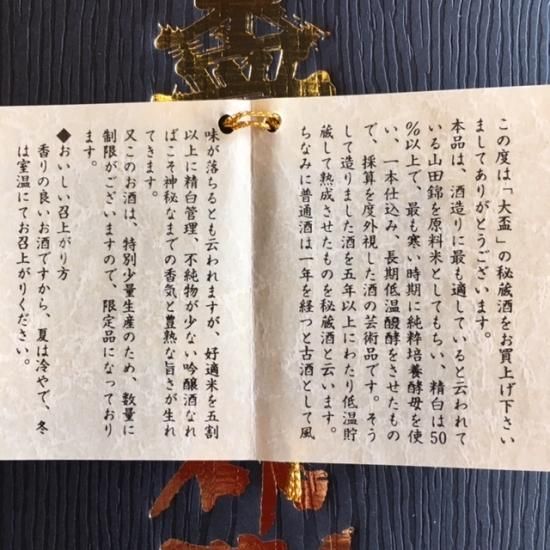 この度は「大盃」の秘蔵酒をお買上げ下さい
ましてありがとうございます。
本品は、酒造りに最も適していると云われて
いる山田錦を原料米としてもちい、精白は50
%以上で、最も寒い時期に純粋培養酵母を使
い、一本仕込み、長期低温醗酵をさせたもの
で、採算を度外視した酒の芸術品です。そう
して造りました酒を五年以上にわたり低温貯
蔵して熟成させたものを秘蔵酒と云います。
ちなみに普通酒は一年を経つと古酒として風
味が落ちるとも云われますが、好適米を五割
以上に精白管理、不純物が少ない吟醸酒なれ
ばこそ神秘なまでの香気と豊熟な旨さが生れ
てきます。
又このお酒は、特別少量生産のため、数量に
制限がございますので、限定品になっており
ます。
◆おいしい召上がり方
香りの良いお酒ですから、夏は冷やで、冬
は室温にてお召上がりください。